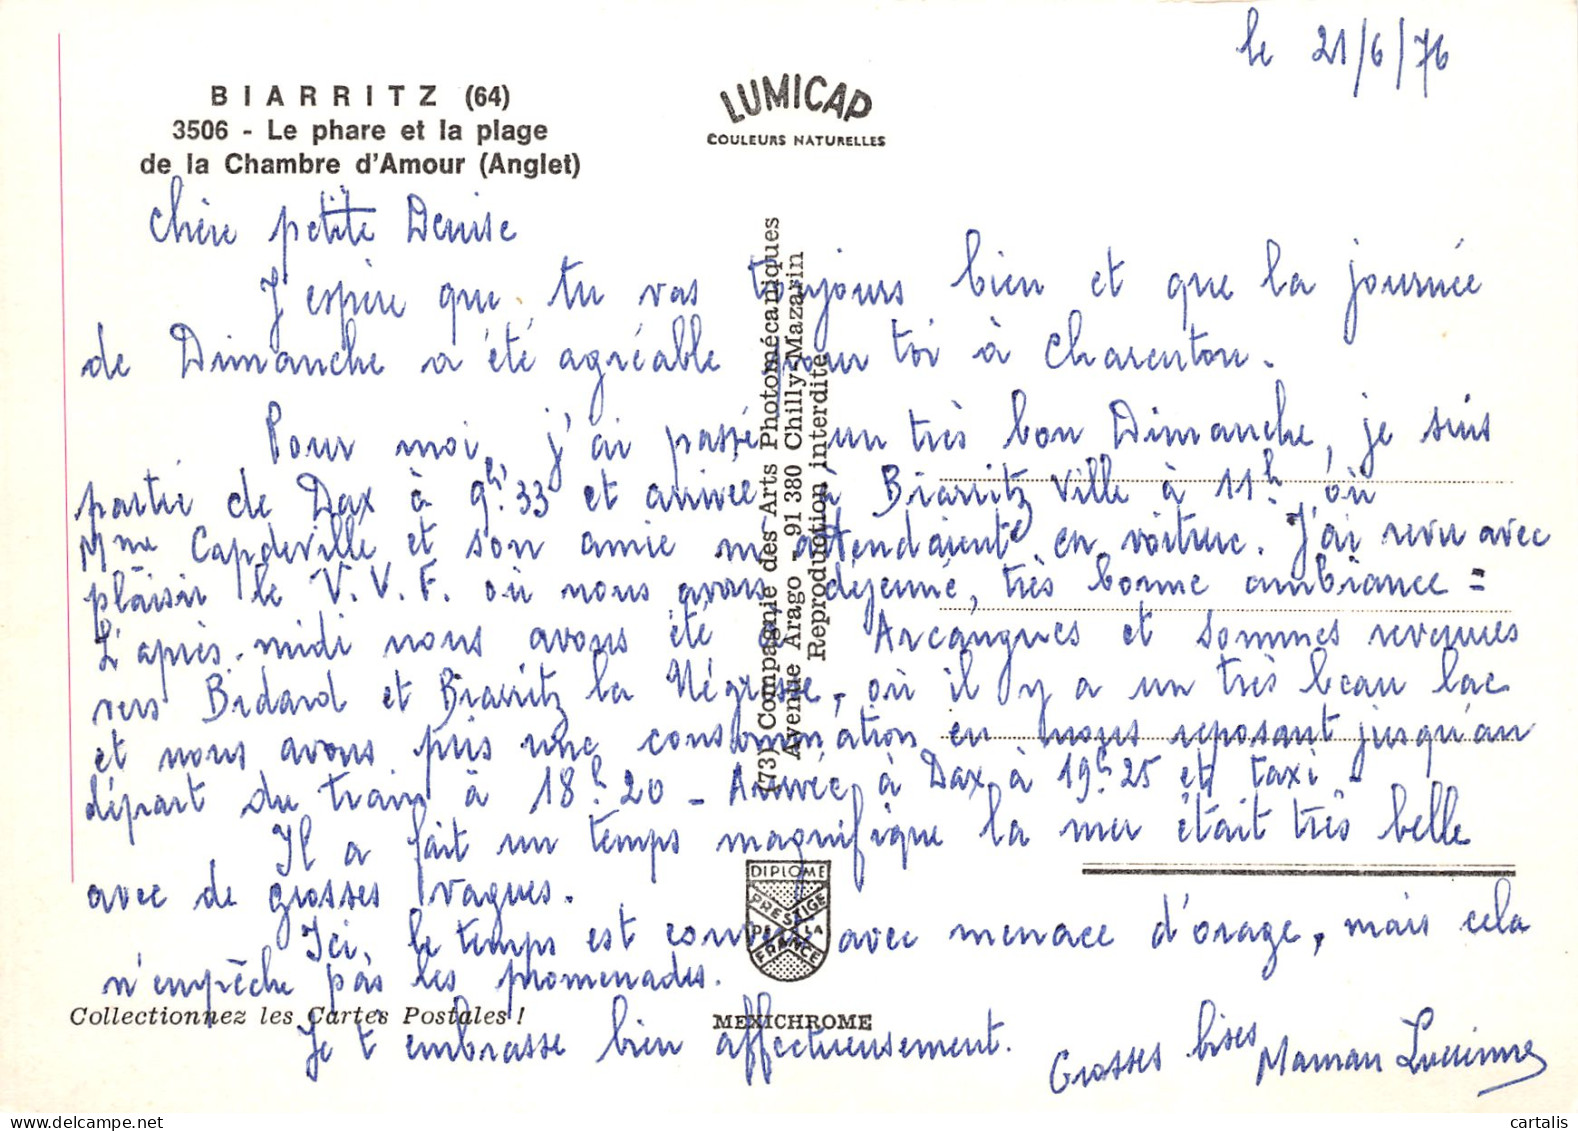 le 21/6/76
BIARRITZ (64)
3506 - Le phare et la plage
de la Chambre d'Amour (Anglet)
LUMICAP
COULEURS NATURELLES
Chère petite Denise
J'espère que tu vas toujours bien et que la journée
de Dimanche a été agréable pour toi à Charenton.
Pour moi, j'ai passé un très bon Dimanche, je suis
partie de Dax à 9h33 et arrivée à Biarritz Ville à 11h, où
Mme Capdeville et son amie m'attendaient en voiture. J'ai revu avec
plaisir le V.V.F. où nous avons déjeuné, très bonne ambiance =
L'après-midi nous avons été à Arcangues et sommes revenues
vers Bidard et Biarritz la Négresse, où il y a un très beau lac
et nous avons pris une consommation en nous reposant jusqu'au
départ du train à 18h20 - Arrivée à Dax à 19h25 et taxi -
Il a fait un temps magnifique la mer était très belle
avec de grosses vagues.
Ici, le temps est couvert avec menace d'orage, mais cela
n'empêche pas les promenades.
Je t'embrasse bien affectueusement.
Grosses bises Maman Lucienne
(73) Compagnie des Arts Photomécaniques
Avenue Arago - 91 380 Chilly-Mazarin
Reproduction interdite
DIPLOME
PRESTIGE
DE LA
FRANCE
Collectionnez les Cartes Postales !
MEXICHROME
cartalis